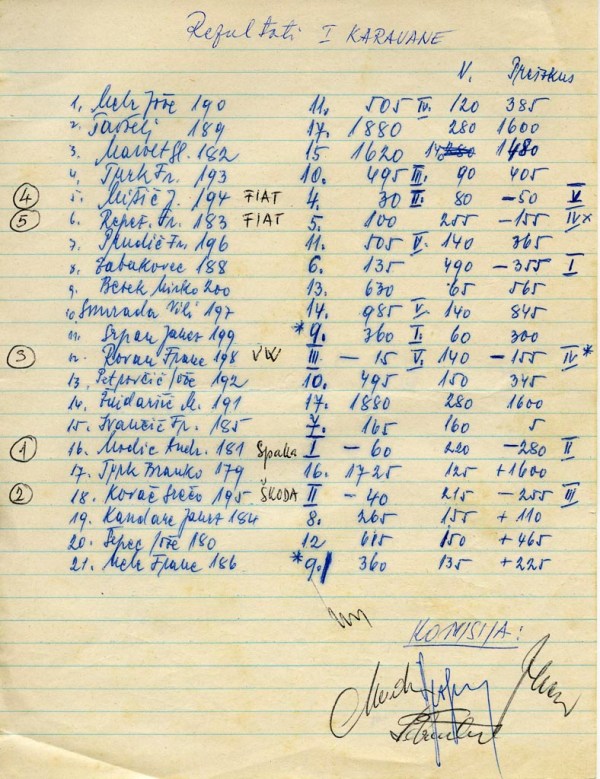 Rezultati I KARAVANE
V. Preizkus
1. Mele Jože 190 11. 505 IV. 120 385
2. 189 17. 1880 280 1600
3. 182 15 1620 1480
4. Turk Fr. 193 10. 495 III. 90 405
④ 5. Mišič J. 194 FIAT 4. 30 II. 80 -50 V
⑤ 6. Fr. 183 FIAT 5. 100 255 -155 IV x
7. Fr. 196 11. 505 V. 140 365
8. Žabukovec 188 6. 135 490 -355 I
9. Mirko 200 13. 630 65 565
10 Smrada Vili 197 14. 985 V. 140 845
11. Janez 199 * 9. 360 I. 60 300
③ 12. Kovač Franc 198 VW III. - 15 V. 140 -155 IV *
13. Petrovčič Jože 192 10. 495 150 345
14. M. 191 17. 1880 280 1600
15. Ivančič Fr. 185 7. 165 160 5
① 16. Modic Andr. 181 Spaka I - 60 220 -280 II
17. Turk Branko 179 16. 1725 125 +1600
② 18. Kovač Srečo 195 ŠKODA II - 40 215 -255 III
19. Kandare Janez 184 8. 265 155 +110
20. Jože 180 12 615 150 +465
21. Mele Franc 186 * 9. 360 135 +225
KOMISIJA: